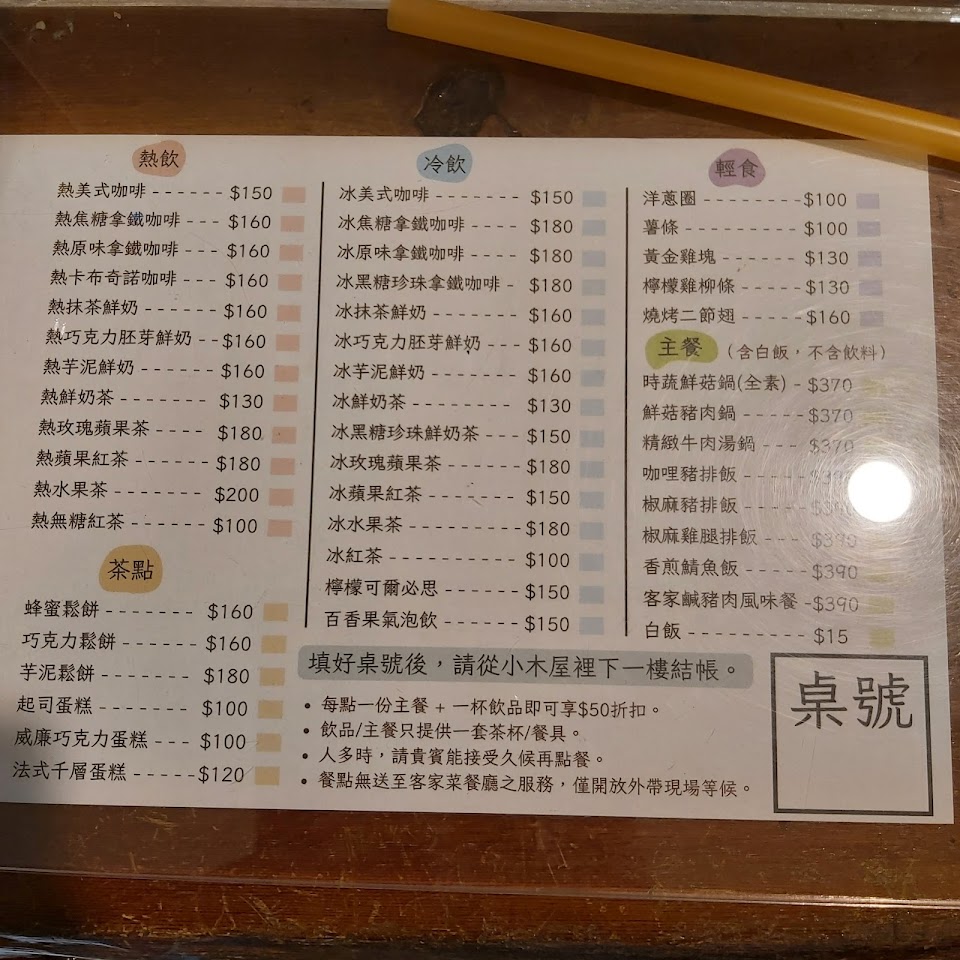 熱飲
熱美式咖啡 - - - - - - $150
熱焦糖拿鐵咖啡 - - - $160
熱原味拿鐵咖啡 - - - $160
熱卡布奇諾咖啡 - - - $160
熱抹茶鮮奶 - - - - - - $160
熱巧克力胚芽鮮奶 - - $160
熱芋泥鮮奶 - - - - - - $160
熱鮮奶茶 - - - - - - - $130
熱玫瑰蘋果茶 - - - - $180
熱蘋果紅茶 - - - - - - $180
熱水果茶 - - - - - - - $200
熱無糖紅茶 - - - - - - $100
茶點
蜂蜜鬆餅 - - - - - - - $160
巧克力鬆餅 - - - - - - $160
芋泥鬆餅 - - - - - - - $180
起司蛋糕 - - - - - - - $100
威廉巧克力蛋糕 - - - $100
法式千層蛋糕 - - - - - $120
冷飲
冰美式咖啡 - - - - - - - $150
冰焦糖拿鐵咖啡 - - - - $180
冰原味拿鐵咖啡 - - - - $180
冰黑糖珍珠拿鐵咖啡 - $180
冰抹茶鮮奶 - - - - - - - $160
冰巧克力胚芽鮮奶 - - - $160
冰芋泥鮮奶 - - - - - - - $160
冰鮮奶茶 - - - - - - - - $130
冰黑糖珍珠鮮奶茶 - - - $150
冰玫瑰蘋果茶 - - - - - - $180
冰蘋果紅茶 - - - - - - - $150
冰水果茶 - - - - - - - - $180
冰紅茶 - - - - - - - - - - $100
檸檬可爾必思 - - - - - - $150
百香果氣泡飲 - - - - - - $150
輕食
洋蔥圈 - - - - - - - - $100
薯條 - - - - - - - - - $100
黃金雞塊 - - - - - - $130
檸檬雞柳條 - - - - - $130
燒烤二節翅 - - - - - $160
主餐 (含白飯，不含飲料)
時蔬鮮菇鍋(全素) - $370
鮮菇豬肉鍋 - - - - - $370
精緻牛肉湯鍋 - - - $370
咖哩豬排飯 - - - - -
椒麻豬排飯 - - - - -
椒麻雞腿排飯 - - - $390
香煎鯖魚飯 - - - - - $390
客家鹹豬肉風味餐 -$390
白飯 - - - - - - - - - $15
填好桌號後，請從小木屋裡下一樓結帳。
• 每點一份主餐 + 一杯飲品即可享$50折扣。
• 飲品/主餐只提供一套茶杯/餐具。
• 人多時，請貴賓能接受久候再點餐。
• 餐點無送至客家菜餐廳之服務，僅開放外帶現場等候。
桌號